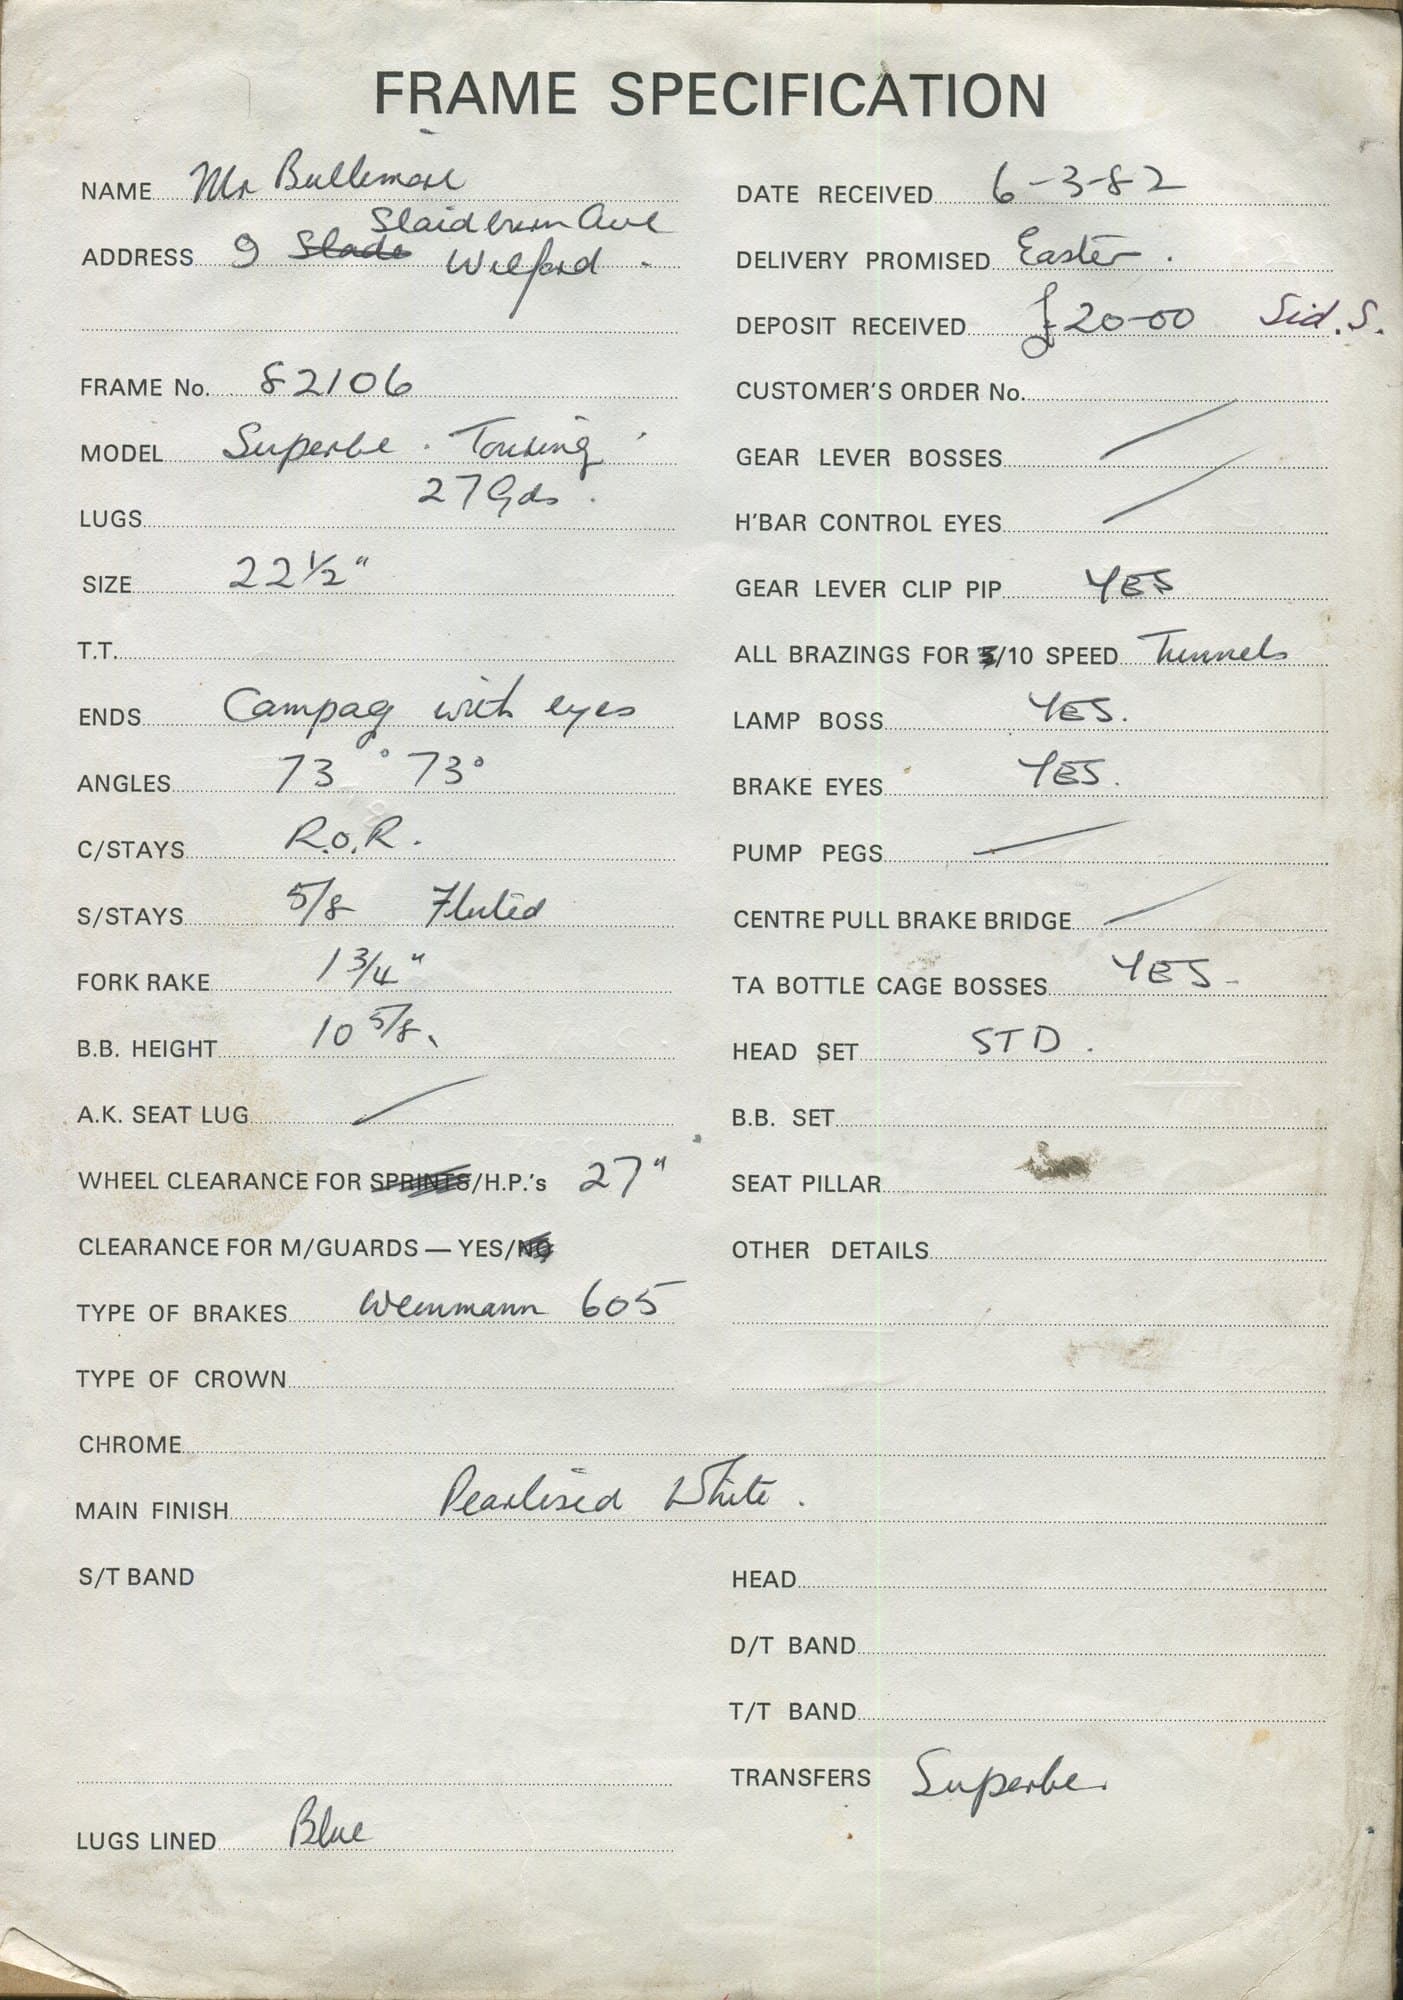 FRAME SPECIFICATION
NAME Mr Bullimore
Slaidburn Ave
ADDRESS 9 Slade Wilford.
FRAME No. 82106
MODEL Superbe. Touring
27 Gds.
LUGS
SIZE 22 1/2"
T.T.
ENDS Campag with eyes
ANGLES 73° 73°
C/STAYS R.O.R.
S/STAYS 5/8 Fluted
FORK RAKE 1 3/4"
B.B. HEIGHT 10 5/8
A.K. SEAT LUG /
WHEEL CLEARANCE FOR SPRINTS/H.P.'s 27"
CLEARANCE FOR M/GUARDS — YES/NO
TYPE OF BRAKES Weinmann 605
TYPE OF CROWN
CHROME
MAIN FINISH Pearlised White.
S/T BAND
LUGS LINED Blue
DATE RECEIVED 6-3-82
DELIVERY PROMISED Easter.
DEPOSIT RECEIVED £20-00 Sid. S.
CUSTOMER'S ORDER No.
GEAR LEVER BOSSES /
H'BAR CONTROL EYES /
GEAR LEVER CLIP PIP YES
ALL BRAZINGS FOR 5/10 SPEED Tunnels
LAMP BOSS YES.
BRAKE EYES YES.
PUMP PEGS /
CENTRE PULL BRAKE BRIDGE /
TA BOTTLE CAGE BOSSES YES-
HEAD SET STD.
B.B. SET
SEAT PILLAR
OTHER DETAILS
HEAD
D/T BAND
T/T BAND
TRANSFERS Superbe.